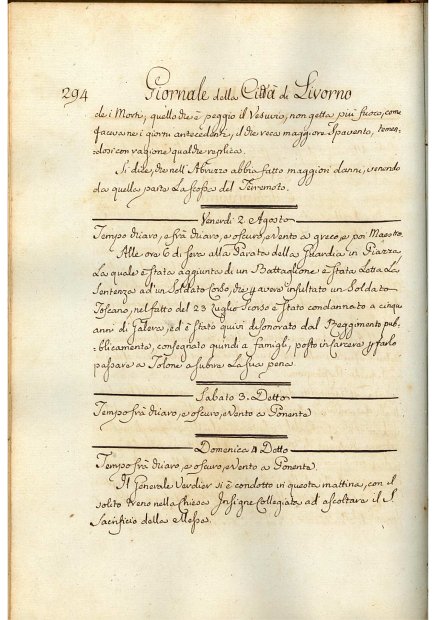 294 Giornale della Città di Livorno
de i Morti, quello che è peggio il Vesuvio, non getta più fuoco, come
faceva ne i giorni antecedenti, il che reca maggiore spavento, temen-
dosi con ragione qualche replica.
Si dice, che nell'Abruzzo abbia fatto maggiori danni, venendo
da quella parte La scossa del Terremoto.
Venerdì 2 Agosto
Tempo chiaro, e frà chiaro, e oscuro, e Vento a greco, e poi Maestro
Alle ore 6 di sera alla Parata della Guardia in Piazza
La quale è stata aggiunta di un Battaglione è Stata Letta La
Sentenza ad un Soldato Corso, che p avere insultato un Soldato
Toscano, nel fatto del 23 Luglio Scorso è Stato condannato a cinque
anni di Galera, ed è Stato quivi disonorato dal Reggimento pub-
blicamente, consegnato quindi a famigli, posto in Carcere p farlo
passare a Tolone a subire La sua pena
Sabato 3. Detto
Tempo frà chiaro, e oscuro, e Vento a Ponente
Domenica 4 Detto
Tempo frà chiaro, e oscuro, e Vento a Ponente.
Il Generale Verdier si è condotto in questa mattina, con il
solito treno nella Chiesa Insigne Collegiata ad ascoltare il S.
Sacrificio della Messa.